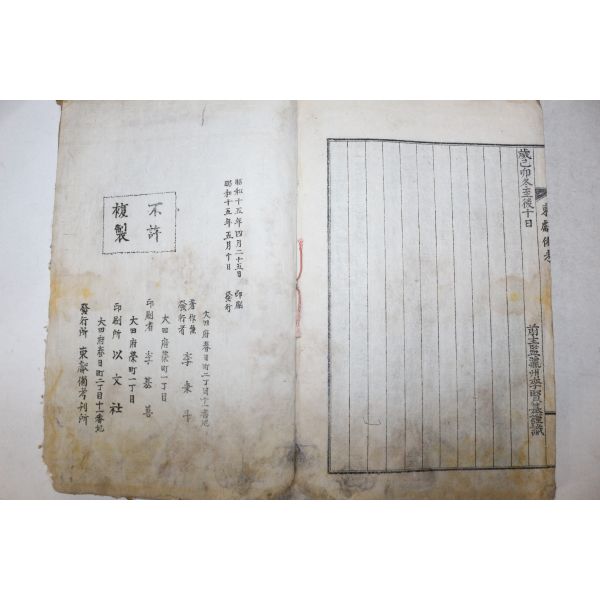 東獻備考
歲己卯冬至後十日
前主監驪州李賢基謹識
昭和十五年四月二十五日 印刷
昭和十五年五月十日 發行
大田府春日町二丁目十一番地
著作兼
發行者 李秉斗
大田府榮町一丁目
印刷者 李基善
大田府榮町一丁目
印刷所 以文社
大田府春日町二丁目十一番地
發行所 東獻備考刊所
不許
複製